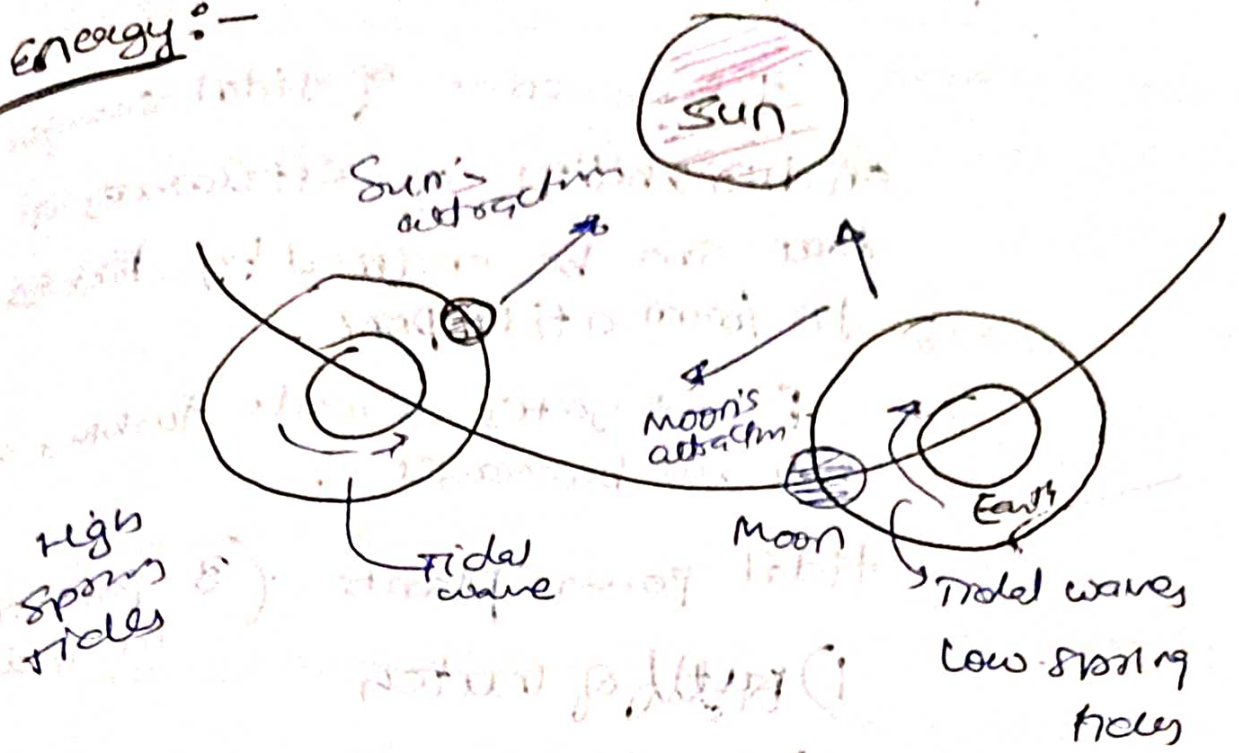 Energy:-
Sun
Sun's
attraction
Moon's
attractn:
Moon
Earth
High
Spring
Tides
Tidal
wave
Tidal waves
Low spring
tides